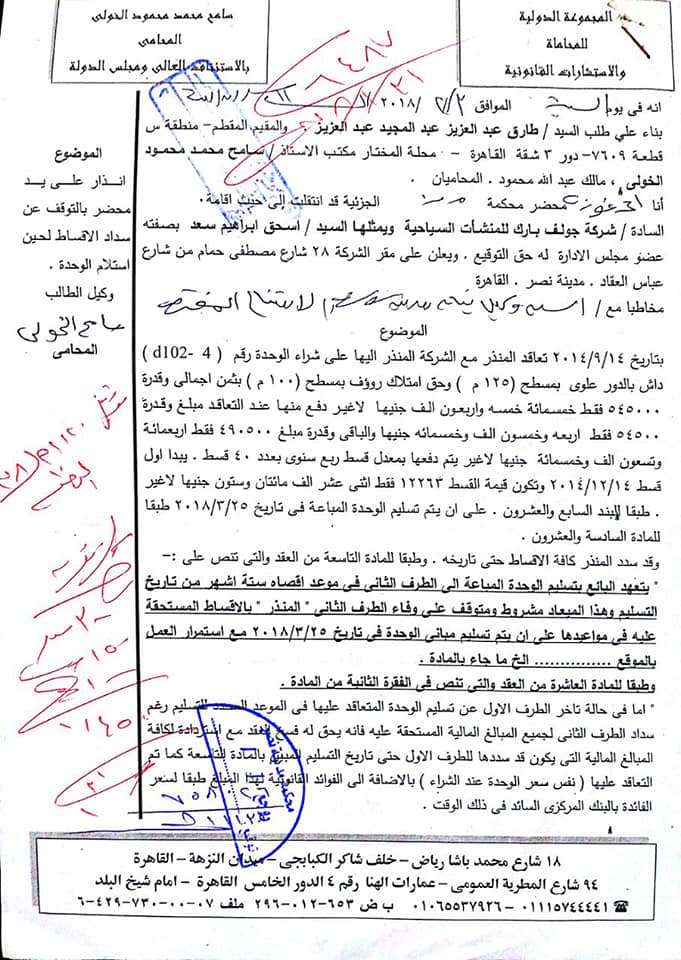 المجموعة الدولية
للمحاماة
والاستشارات القانونية
سامح محمد محمود الخولى
المحامى
بالاستئناف العالى ومجلس الدولة
انه فى يوم السبت الموافق ٢٠١٨/٢/٣
بناء علي طلب السيد / طارق عبد العزيز عبد المجيد عبد العزيز . والمقيم المقطم – منطقة س
قطعة ٧٦٠٩- دور ٣ شقة القاهرة - محلة المختار مكتب الاستاذ / سامح محمد محمود
الخولى ، مالك عبد الله محمود . المحاميان .
أنا محضر محكمة الجزئية قد انتقلت إلى حيث اقامة .
السادة / شركة جولف بارك للمنشأت السياحية ويمثلها السيد / اسحق ابراهيم سعد بصفته
عضو مجلس الادارة له حق التوقيع . ويعلن على مقر الشركة ٢٨ شارع مصطفى حمام من شارع
عباس العقاد . مدينة نصر . القاهرة
مخاطبا مع /
الموضوع
انذار على يد
محضر بالتوقف عن
سداد الاقساط لحين
استلام الوحدة .
وكيل الطالب
سامح الخولى
المحامى
الموضوع
بتاريخ ٢٠١٤/٩/١٤ تعاقد المنذر مع الشركة المنذر اليها على شراء الوحدة رقم ( d102- 4 )
داش بالدور علوى بمسطح (١٢٥ م ) وحق امتلاك روؤف بمسطح (١٠٠ م ) بثمن اجمالى وقدرة
٥٤٥٠٠٠ فقط خمسمائة خمسه واربعون الف جنيها لاغير دفع منها عند التعاقد مبلغ وقدرة
٥٤٥٠٠ فقط اربعه وخمسون الف وخمسمائه جنيها والباقى وقدرة مبلغ ٤٩٠٥٠٠ فقط اربعمائة
وتسعون الف وخمسمائة جنيها لاغير يتم دفعها بمعدل قسط ربع سنوى بعدد ٤٠ قسط . يبدا اول
قسط ٢٠١٤/١٢/١٤ وتكون قيمة القسط ١٢٢٦٣ فقط اثنى عشر الف مائتان وستون جنيها لاغير
. طبقا للبند السابع والعشرون . على ان يتم تسليم الوحدة المباعة فى تاريخ ٢٠١٨/٣/٢٥ طبقا
للمادة السادسة والعشرون .
وقد سدد المنذر كافة الاقساط حتى تاريخه . وطبقا للمادة التاسعة من العقد والتى تنص على :–
" يتعهد البائع بتسليم الوحدة المباعة الى الطرف الثانى فى موعد اقصاه ستة اشهر من تاريخ
التسليم وهذا الميعاد مشروط ومتوقف على وفاء الطرف الثانى " المنذر " بالاقساط المستحقة
عليه فى مواعيدها على ان يتم تسليم مبانى الوحدة فى تاريخ ٢٠١٨/٣/٢٥ مع استمرار العمل
بالموقع ............... الخ ما جاء بالمادة .
وطبقا للمادة العاشرة من العقد والتى تنص فى الفقرة الثانية من المادة .
" اما فى حالة تاخر الطرف الاول عن تسليم الوحدة المتعاقد عليها فى الموعد المحدد للتسليم رغم
سداد الطرف الثانى لجميع المبالغ المالية المستحقة عليه فانه يحق له فسخ العقد مع استردادة لكافة
المبالغ المالية التى يكون قد سددها للطرف الاول حتى تاريخ التسليم المبين بالمادة التاسعة كما تم
التعاقد عليها ( نفس سعر الوحدة عند الشراء ) بالاضافة الى الفوائد القانونية لهذا المبلغ طبقا لسعر
الفائدة بالبنك المركزى السائد فى ذلك الوقت .
١٨ شارع محمد باشا رياض – خلف شاكر الكبابجى – ميدان النزهة – القاهرة
٩٤ شارع المطرية العمومى – عمارات الهنا رقم ٤ الدور الخامس القاهرة - امام شيخ البلد
☎ ٠١١١٥٧٤٤٤٤١ – ٠١٠٦٥٥٣٧٩٢٦ ب ض ٦٥٣-٠١٢-٢٩٦ ملف ٠٧-٠٠-٧٣٠-٤٢٩-٦